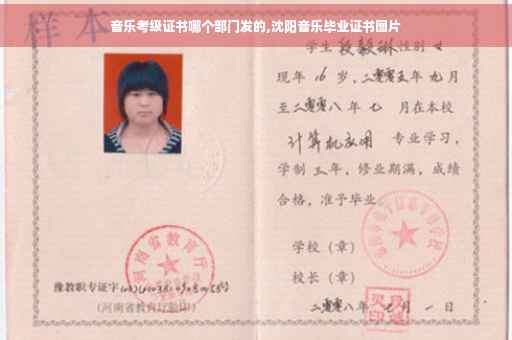 音乐考级证书哪个部门发的,沈阳音乐毕业证书图片
样本
学生 段毅琳 性别 女
现年 16 岁，二零零五年 九月
至二零零八年 七 月在本校
计算机应用 专业学习，
学制 三 年，修业期满，成绩
合格，准予毕业。
学校（章）
校长（章）
二零零八年 七 月 一 日
河南省教育厅
豫教职专证字
（河南省教育厅验印）